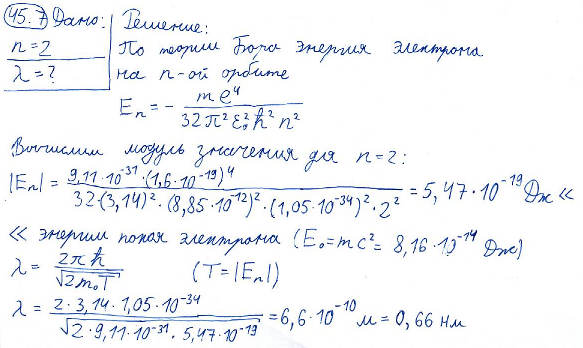 45.7 Дано: Решение:
n = 2 По теории Бора энергия электрона
λ = ? на n-ой орбите
Eₙ = - me⁴ / 32π²ε₀²ħ²n²
Вычислим модуль значения для n=2:
|Eₙ| = 9,11·10⁻³¹·(1,6·10⁻¹⁹)⁴ / 32·(3,14)²·(8,85·10⁻¹²)²·(1,05·10⁻³⁴)²·2² = 5,47·10⁻¹⁹ Дж <<
<< энергии покоя электрона (E₀=mc²= 8,16·10⁻¹⁴ Дж)
λ = 2πħ / √2m₀T (T=|Eₙ|)
λ = 2·3,14·1,05·10⁻³⁴ / √2·9,11·10⁻³¹·5,47·10⁻¹⁹ = 6,6·10⁻¹⁰ м = 0,66 нм